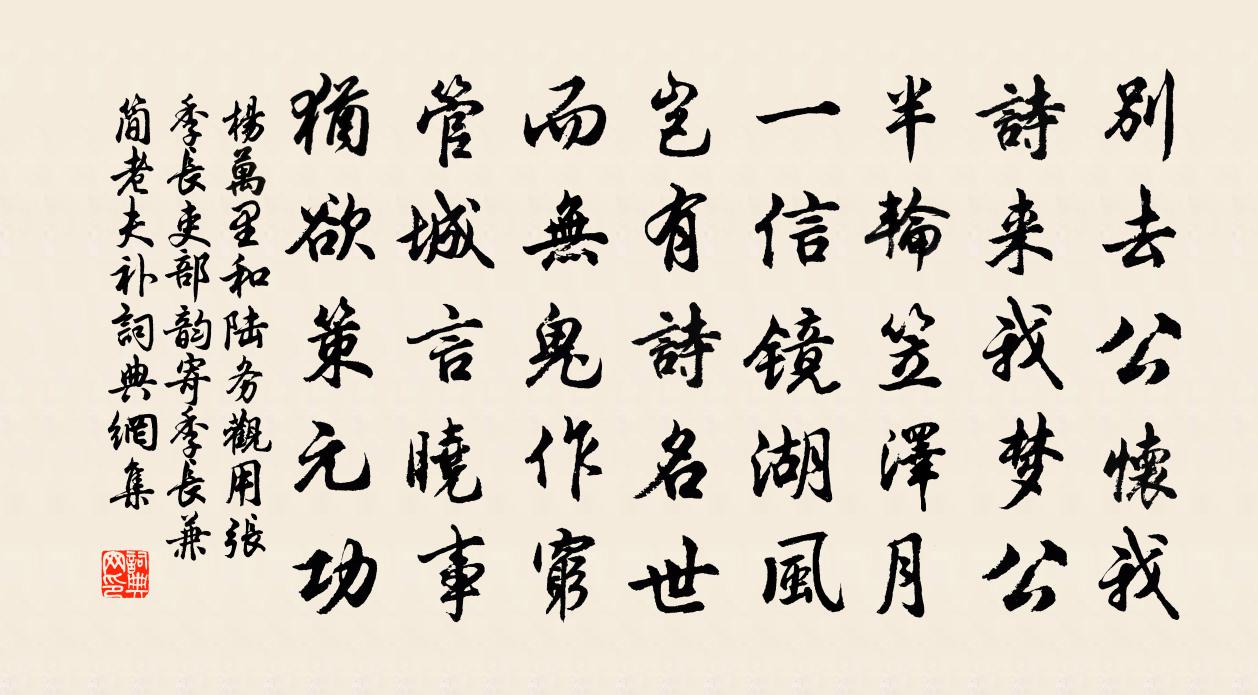 別去公懷我
詩来我梦公
半輪笠澤月
一信鏡湖風
岂有詩名世
而無鬼作窮
管城言曉事
猶欲策元功
楊萬里和陆务觀用張
季長吏部韵寄季長兼
簡老夫补詞典網集
詞典
网印